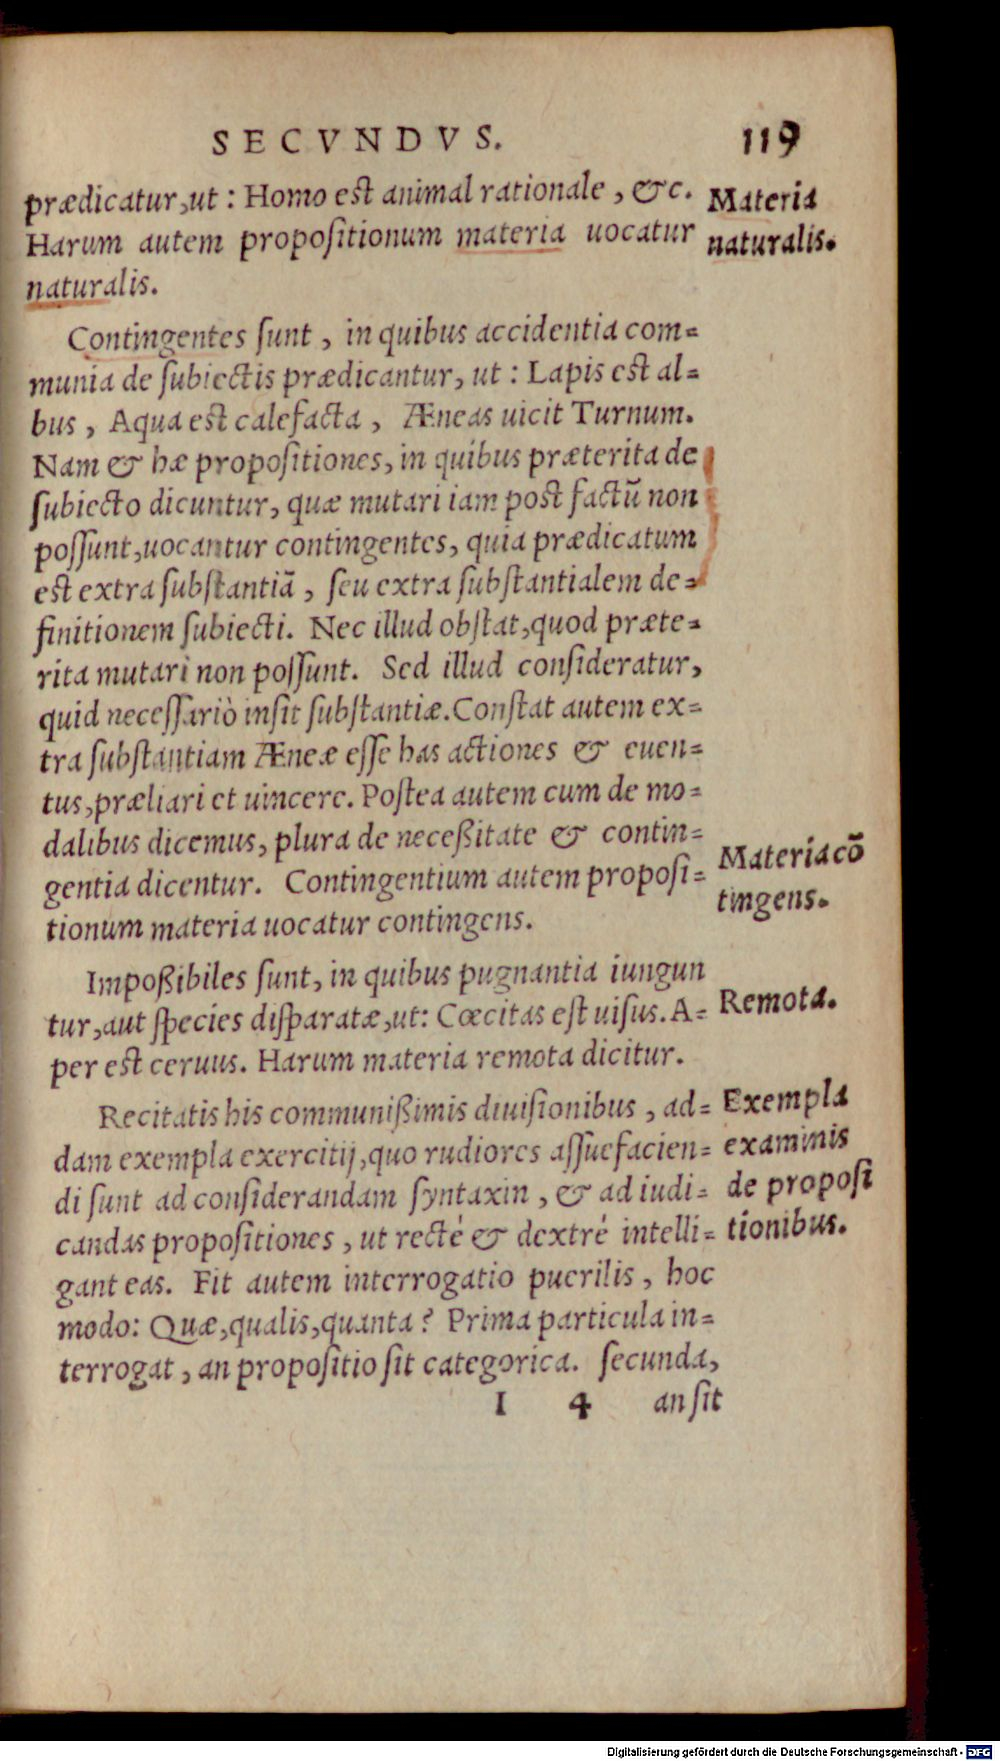 SECVNDVS. 119
prædicatur,ut : Homo est animal rationale , &c.
Materia
Harum autem propositionum materia uocatur
naturalis.
naturalis.
Contingentes sunt , in quibus accidentia com=
munia de subiectis prædicantur, ut : Lapis est al=
bus , Aqua est calefacta , Æneas uicit Turnum.
Nam & hæ propositiones, in quibus præterita de
subiecto dicuntur, quæ mutari iam post factū non
possunt,uocantur contingentes, quia prædicatum
est extra substantiā , seu extra substantialem de=
finitionem subiecti. Nec illud obstat,quod præte=
rita mutari non possunt. Sed illud consideratur,
quid necessariò insit substantiæ.Constat autem ex=
tra substantiam Æneæ esse has actiones & euen=
tus,præliari et uincere. Postea autem cum de mo=
dalibus dicemus, plura de neceßitate & contin=
Materia cō
gentia dicentur. Contingentium autem proposi=
tingens.
tionum materia uocatur contingens.
Impoßibiles sunt, in quibus pugnantia iungun
Remota.
tur,aut species disparatæ,ut: Cœcitas est uisus. A=
per est ceruus. Harum materia remota dicitur.
Recitatis his communißimis diuisionibus , ad=
Exempla
dam exempla exercitij,quo rudiores assuefacien=
examinis
di sunt ad considerandam syntaxin , & ad iudi=
de proposi
candas propositiones , ut rectè & dextrè intelli=
tionibus.
gant eas. Fit autem interrogatio puerilis , hoc
modo: Quæ,qualis,quanta ? Prima particula in=
terrogat , an propositio sit categorica. secunda,
I 4 an sit
Digitalisierung gefördert durch die Deutsche Forschungsgemeinschaft - DFG